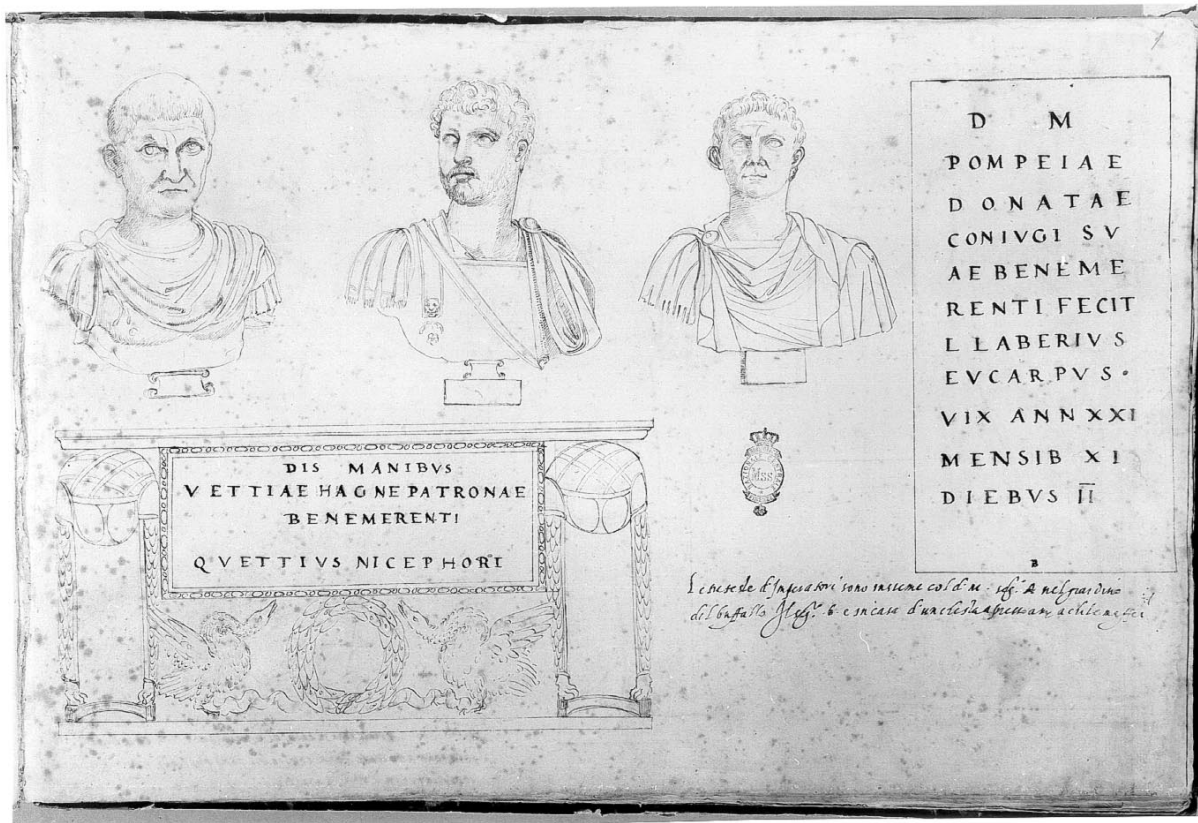 1
D M
POMPEIAE
DONATAE
CONIVGI SV
AE BENEME
RENTI FECIT
L LABERIVS
EVCARPVS·
VIX ANN XXI
MENSIB XI
DIEBVS II
B
DIS MANIBVS
VETTIAE HAGNE PATRONAE
BENEMERENTI
Q VETTIVS NICEPHORI
MSS
Le teste de Imperatori sono insieme col d. m. A nel giardino
del buffallo B e in casa d'un